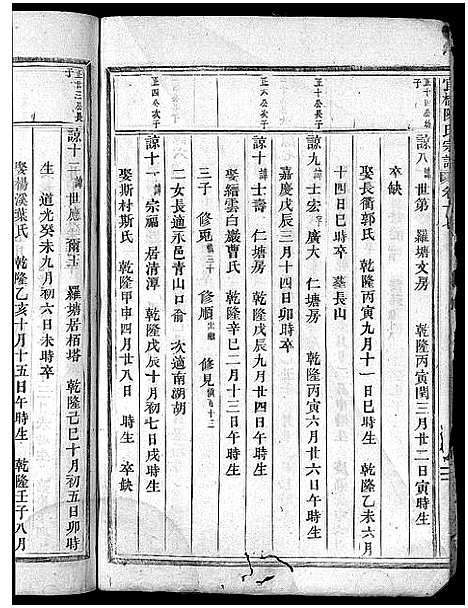 宜橋陳氏宗譜
諒八 諱 世第 羅塘文房 乾隆丙寅閏三月廿二日寅時生
卒缺
娶長衢郭氏 乾隆丙寅九月十一日巳時生 乾隆乙未六月
十四日巳時卒 墓長山
正十公長子
諒九 諱 士宏 字 廣大 仁塘房 乾隆丙寅六月廿六日午時生
嘉慶戊辰三月十四日卯時卒
正六公次子
諒十 諱 士壽 仁塘房 乾隆戊辰九月廿四日午時生
娶縉雲白巖曹氏 乾隆辛巳二月十三日午時生
三子 修兎 修順 修見
二女長適永邑青山口俞 次適南湖胡
正四公次子
諒十一 諱 宗福 居清潭 乾隆戊辰十月初七日戌時生
娶斯村斯氏 乾隆甲申四月廿八日 時生 卒缺
諒十二 諱 世應 羅塘居栢塔 乾隆己巳十月初五日卯時
生 道光癸未九月初六日未時卒
娶楊溪葉氏 乾隆乙亥十月十五日午時生 乾隆壬子八月